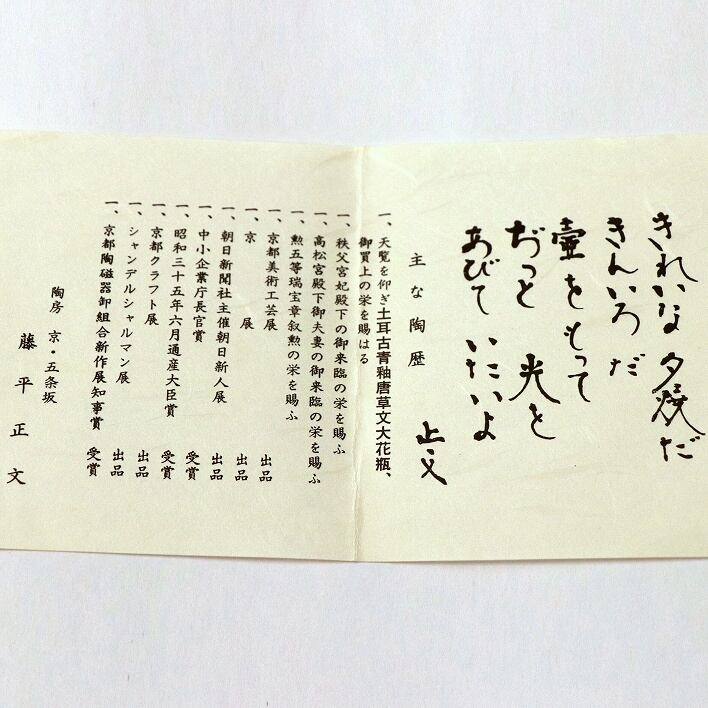 きれいな夕燒だ
きんいろだ
壷をもって
ぢっと光と
あびていたいよ
正文
主な陶歴
一、天覧を仰ぎ土耳古青釉唐草文大花瓶、
御買上の栄を賜はる
一、秩父宮妃殿下の御来臨の栄を賜ふ
一、高松宮殿下御夫妻の御来臨の栄を賜ふ
一、勲五等瑞宝章叙勲の栄を賜ふ
一、京都美術工芸展 出品
一、京展 出品
一、朝日新聞社主催朝日新人展 出品
一、中小企業庁長官賞 受賞
一、昭和三十五年六月通産大臣賞 受賞
一、京都クラフト展 出品
一、シャンデルシャルマン展 出品
一、京都陶磁器卸組合新作展知事賞 受賞
陶房 京・五条坂
藤平正文